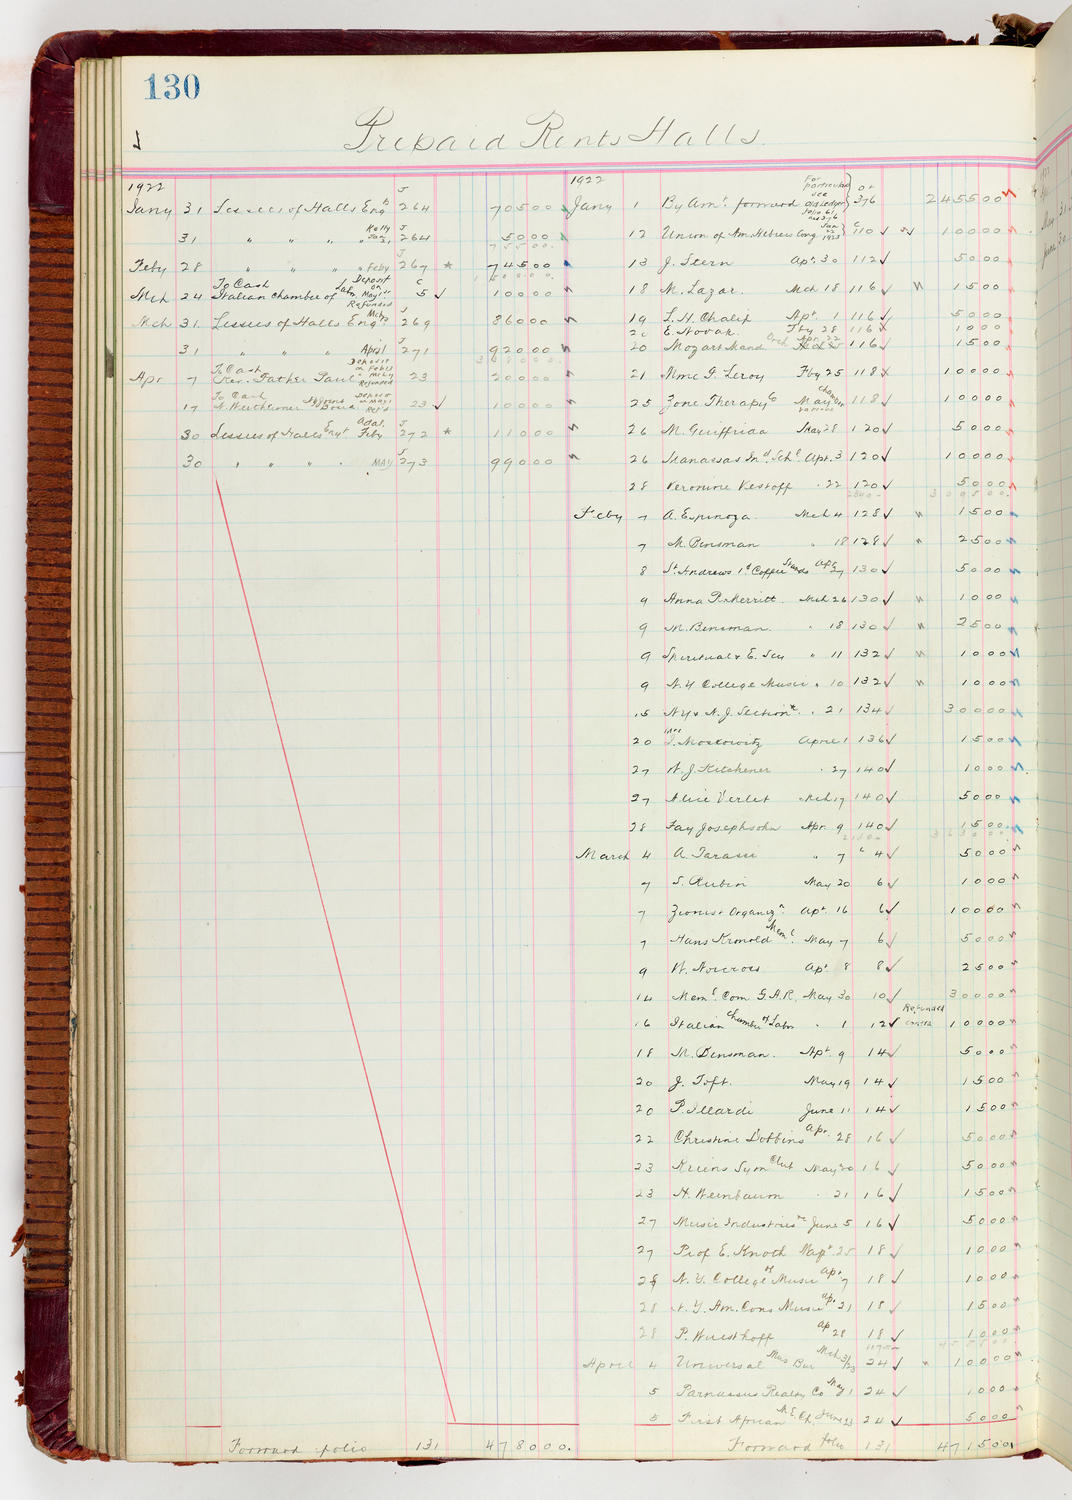 130
Prepaid Rents Halls.
1922
Jany 31 Lessees of Halls Engts J 264 70500
31 " " " " Kelly Jan 21 J 264 5000
75500
Feby 28 " " " " Feby J 267 * 74500
150000
Mch 24 To Cash Italian Chamber of Labr Deposit on May 1st Refunded C 5 ✓ 10000
Mch 31 Lessees of Halls Engts Mch J 269 86000
31 " " " April J 271 92000
Apr 7 To Cash Rev. Father Paul Deposit on Feb 25 Refunded 23 20000
17 To Cash A. Wertheimer Deposit on May 1 Ref'd 23 ✓ 10000
30 Lessees of Halls Engt Adal. Feby J 272 * 11000
30 " " " . MAY J 273 99000
Forward folio 131 478000.
1922
Jany 1 By Amt. forward For particulars see Old Ledger folio 61 and 376 OL 376 245500
12 Union of Am. Hebrew Cong Jan 22 1923 C 110 ✓ 10000
13 J. Stern Apr. 30 112 ✓ 5000
18 M. Lazar. Mch 18 116 ✓ 1500
19 F. H. Chalif Apr. 1 116 ✓ 5000
20 E. Novak. Fby 28 116 1000
20 Mozart Mand Orch Apr. 22 116 ✓ 1500
21 Mme G. Leroy Fby 25 118 10000
25 Zone Therapy Co May Chamber various 118 ✓ 10000
26 M. Guiffrida May 28 120 ✓ 5000
26 Manassas Ind. Schl. Apr. 3 120 ✓ 10000
28 Veronine Vestoff . 22 120 ✓ 5000
2840 300500
Feby 7 A. Espinoza. Mch 4 128 ✓ 1500
7 M. Bensman " 18 128 ✓ 2500
8 St. Andrews 1c Coffee Stands Apr 27 130 ✓ 5000
9 Anna P. Merritt Mch 26 130 ✓ 1000
9 M. Bensman. " 18 130 ✓ 2500
9 Spiritual & E. Soy " 11 132 ✓ 1000
9 N. Y College Music " 10 132 ✓ 1000
15 N.Y & N. J. Section . 21 134 ✓ 30000
20 I. Moskowitz April 1 136 ✓ 1500
27 A. J. Kitchener . 27 140 ✓ 1000
27 Alice Verlet Mch 17 140 ✓ 5000
28 Fay Josephsohn Apr. 9 140 ✓ 1500
March 4 A. Tarassi " 7 C 4 ✓ 5000
7 S. Rubin May 20 6 ✓ 1000
7 Zionist Organizn. Apr. 16 6 ✓ 10000
7 Hans Kronold Meml. May 7 6 ✓ 5000
9 W. Norcross Apl 8 8 ✓ 2500
14 Meml. Com G.A.R. May 30 10 ✓ 30000
16 Italian Chamber of Labr . 1 12 ✓ Refunded contra 10000
18 M. Bensman. Apl. 9 14 ✓ 5000
20 J. Toft. May 19 14 ✓ 1500
20 P. Ilardi June 11 14 ✓ 1500
22 Christine Dobbins Apr. 28 16 ✓ 5000
23 Kriens Sym Club May 20 16 ✓ 5000
23 H. Weinbaum . 21 16 ✓ 1500
27 Music Industries June 5 16 ✓ 5000
27 Prof E. Knoch 25 18 ✓ 1000
28 N. Y. College of Music Apr. 7 18 ✓ 1000
28 N. Y. Am. Cons Music Ap. 21 18 ✓ 1500
28 P. Wuesthoff Ap 28 18 ✓ 1000
April 4 Universal Mus Bur Mch 31/23 24 ✓ 10000
5 Parnassus Realty Co May 1 24 ✓ 1000
5 First African M.E. Ch. June 23 24 ✓ 5000
Forward folio 131 471500